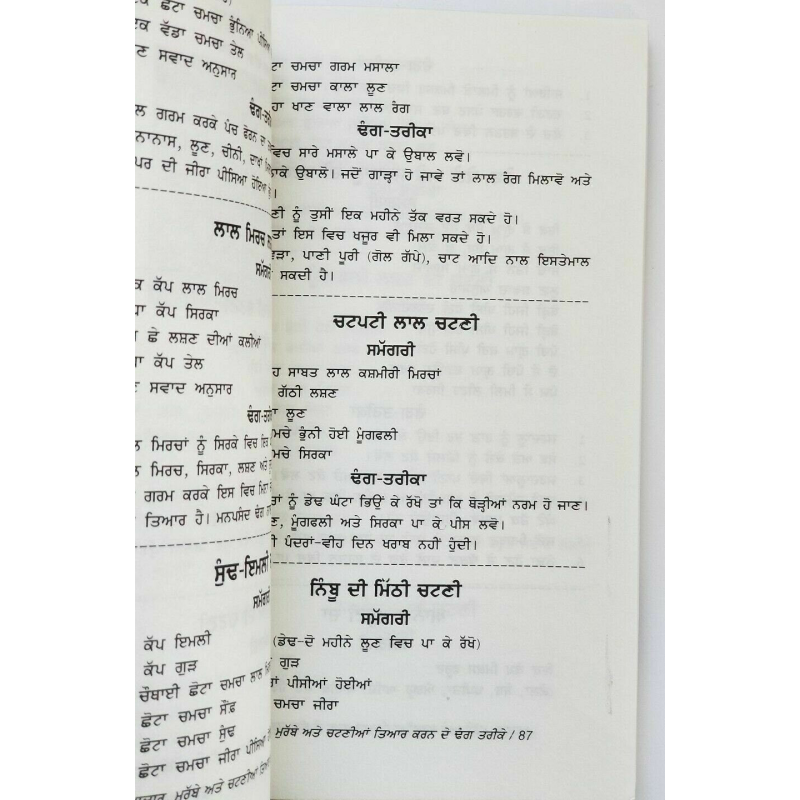 ਕ ਛੋਟਾ ਚਮਚਾ ਭੁੰਨਿਆ ਪੀਸਿਆ
ਇਕ ਵੱਡਾ ਚਮਚਾ ਤੇਲ
ਣ ਸਵਾਦ ਅਨੁਸਾਰ
ਢੰਗ-ਤਰੀ
ਲ ਗਰਮ ਕਰਕੇ ਪੰਚ ਫੋਰਨ ਦਾ
ਨਾਨਾਸ, ਲੂਣ, ਚੀਨੀ, ਦਾਖਾਂ
ਪਰ ਦੀ ਜੀਰਾ ਪੀਸਿਆ ਹੋਇਆ
ਲਾਲ ਮਿਰਚ
ਸਮੱਗਰੀ
ਕ ਕੱਪ ਲਾਲ ਮਿਰਚ
ਾ ਕੱਪ ਸਿਰਕਾ
ਛੇ ਲਸ਼ਣ ਦੀਆਂ ਕਲੀਆਂ
ਾ ਕੱਪ ਤੇਲ
ਣ ਸਵਾਦ ਅਨੁਸਾਰ
ਢੰਗ-ਤਰੀ
ਲ ਮਿਰਚਾਂ ਨੂੰ ਸਿਰਕੇ ਵਿਚ
ਲ ਮਿਰਚ, ਸਿਰਕਾ, ਲਸ਼ਣ ਅਤੇ
ਗਰਮ ਕਰਕੇ ਇਸ ਵਿਚ
ਤਿਆਰ ਹੈ। ਮਨਪਸੰਦ ਢੰਗ
ਸੁੰਢ-ਇਮਲੀ
ਸਮੱਗਰੀ
ਕੱਪ ਇਮਲੀ
ਕੱਪ ਗੁੜ
ਚੌਥਾਈ ਛੋਟਾ ਚਮਚਾ ਲਾਲ
ਛੋਟਾ ਚਮਚਾ ਸੌਂਫ਼
ਛੋਟਾ ਚਮਚਾ ਸੁੰਢ
ਛੋਟਾ ਚਮਚਾ ਜੀਰਾ ਪੀਸਿਆ
ਮੁਰੱਬੇ ਅਤੇ ਚਟਣੀਆਂ
ਟਾ ਚਮਚਾ ਗਰਮ ਮਸਾਲਾ
ਟਾ ਚਮਚਾ ਕਾਲਾ ਲੂਣ
ਹਾ ਖਾਣ ਵਾਲਾ ਲਾਲ ਰੰਗ
ਢੰਗ-ਤਰੀਕਾ
ਵਿਚ ਸਾਰੇ ਮਸਾਲੇ ਪਾ ਕੇ ਉਬਾਲ ਲਵੋ।
ਾਕੇ ਉਬਾਲੋ। ਜਦੋਂ ਗਾੜ੍ਹਾ ਹੋ ਜਾਵੇ ਤਾਂ ਲਾਲ ਰੰਗ ਮਿਲਾਵੋ ਅਤੇ
।
ਣੀ ਨੂੰ ਤੁਸੀਂ ਇਕ ਮਹੀਨੇ ਤੱਕ ਵਰਤ ਸਕਦੇ ਹੋ।
ਤਾਂ ਇਸ ਵਿਚ ਖਜੂਰ ਵੀ ਮਿਲਾ ਸਕਦੇ ਹੋ।
ਵੜਾ, ਪਾਣੀ ਪੂਰੀ (ਗੋਲ ਗੱਪੇ), ਚਾਟ ਆਦਿ ਨਾਲ ਇਸਤੇਮਾਲ
ਸਕਦੀ ਹੈ।
ਚਟਪਟੀ ਲਾਲ ਚਟਣੀ
ਸਮੱਗਰੀ
ਹ ਸਾਬਤ ਲਾਲ ਕਸ਼ਮੀਰੀ ਮਿਰਚਾਂ
ਗੱਠੀ ਲਸ਼ਣ
ਾ ਲੂਣ
ਮਚੇ ਭੁੰਨੀ ਹੋਈ ਮੂੰਗਫਲੀ
ਮਚੇ ਸਿਰਕਾ
ਢੰਗ-ਤਰੀਕਾ
ਾਂ ਨੂੰ ਡੇਢ ਘੰਟਾ ਭਿਉਂ ਕੇ ਰੱਖੋ ਤਾਂ ਕਿ ਥੋੜ੍ਹੀਆਂ ਨਰਮ ਹੋ ਜਾਣ।
ਣ, ਮੂੰਗਫਲੀ ਅਤੇ ਸਿਰਕਾ ਪਾ ਕੇ ਪੀਸ ਲਵੋ।
ੀ ਪੰਦਰਾਂ-ਵੀਹ ਦਿਨ ਖਰਾਬ ਨਹੀਂ ਹੁੰਦੀ।
ਨਿੰਬੂ ਦੀ ਮਿੱਠੀ ਚਟਣੀ
ਸਮੱਗਰੀ
(ਡੇਢ-ਦੋ ਮਹੀਨੇ ਲੂਣ ਵਿਚ ਪਾ ਕੇ ਰੱਖੋ)
ਗੁੜ
ਾਂ ਪੀਸੀਆਂ ਹੋਈਆਂ
ਚਮਚਾ ਜੀਰਾ
ਮੁਰੱਬੇ ਅਤੇ ਚਟਣੀਆਂ ਤਿਆਰ ਕਰਨ ਦੇ ਢੰਗ ਤਰੀਕੇ / 87